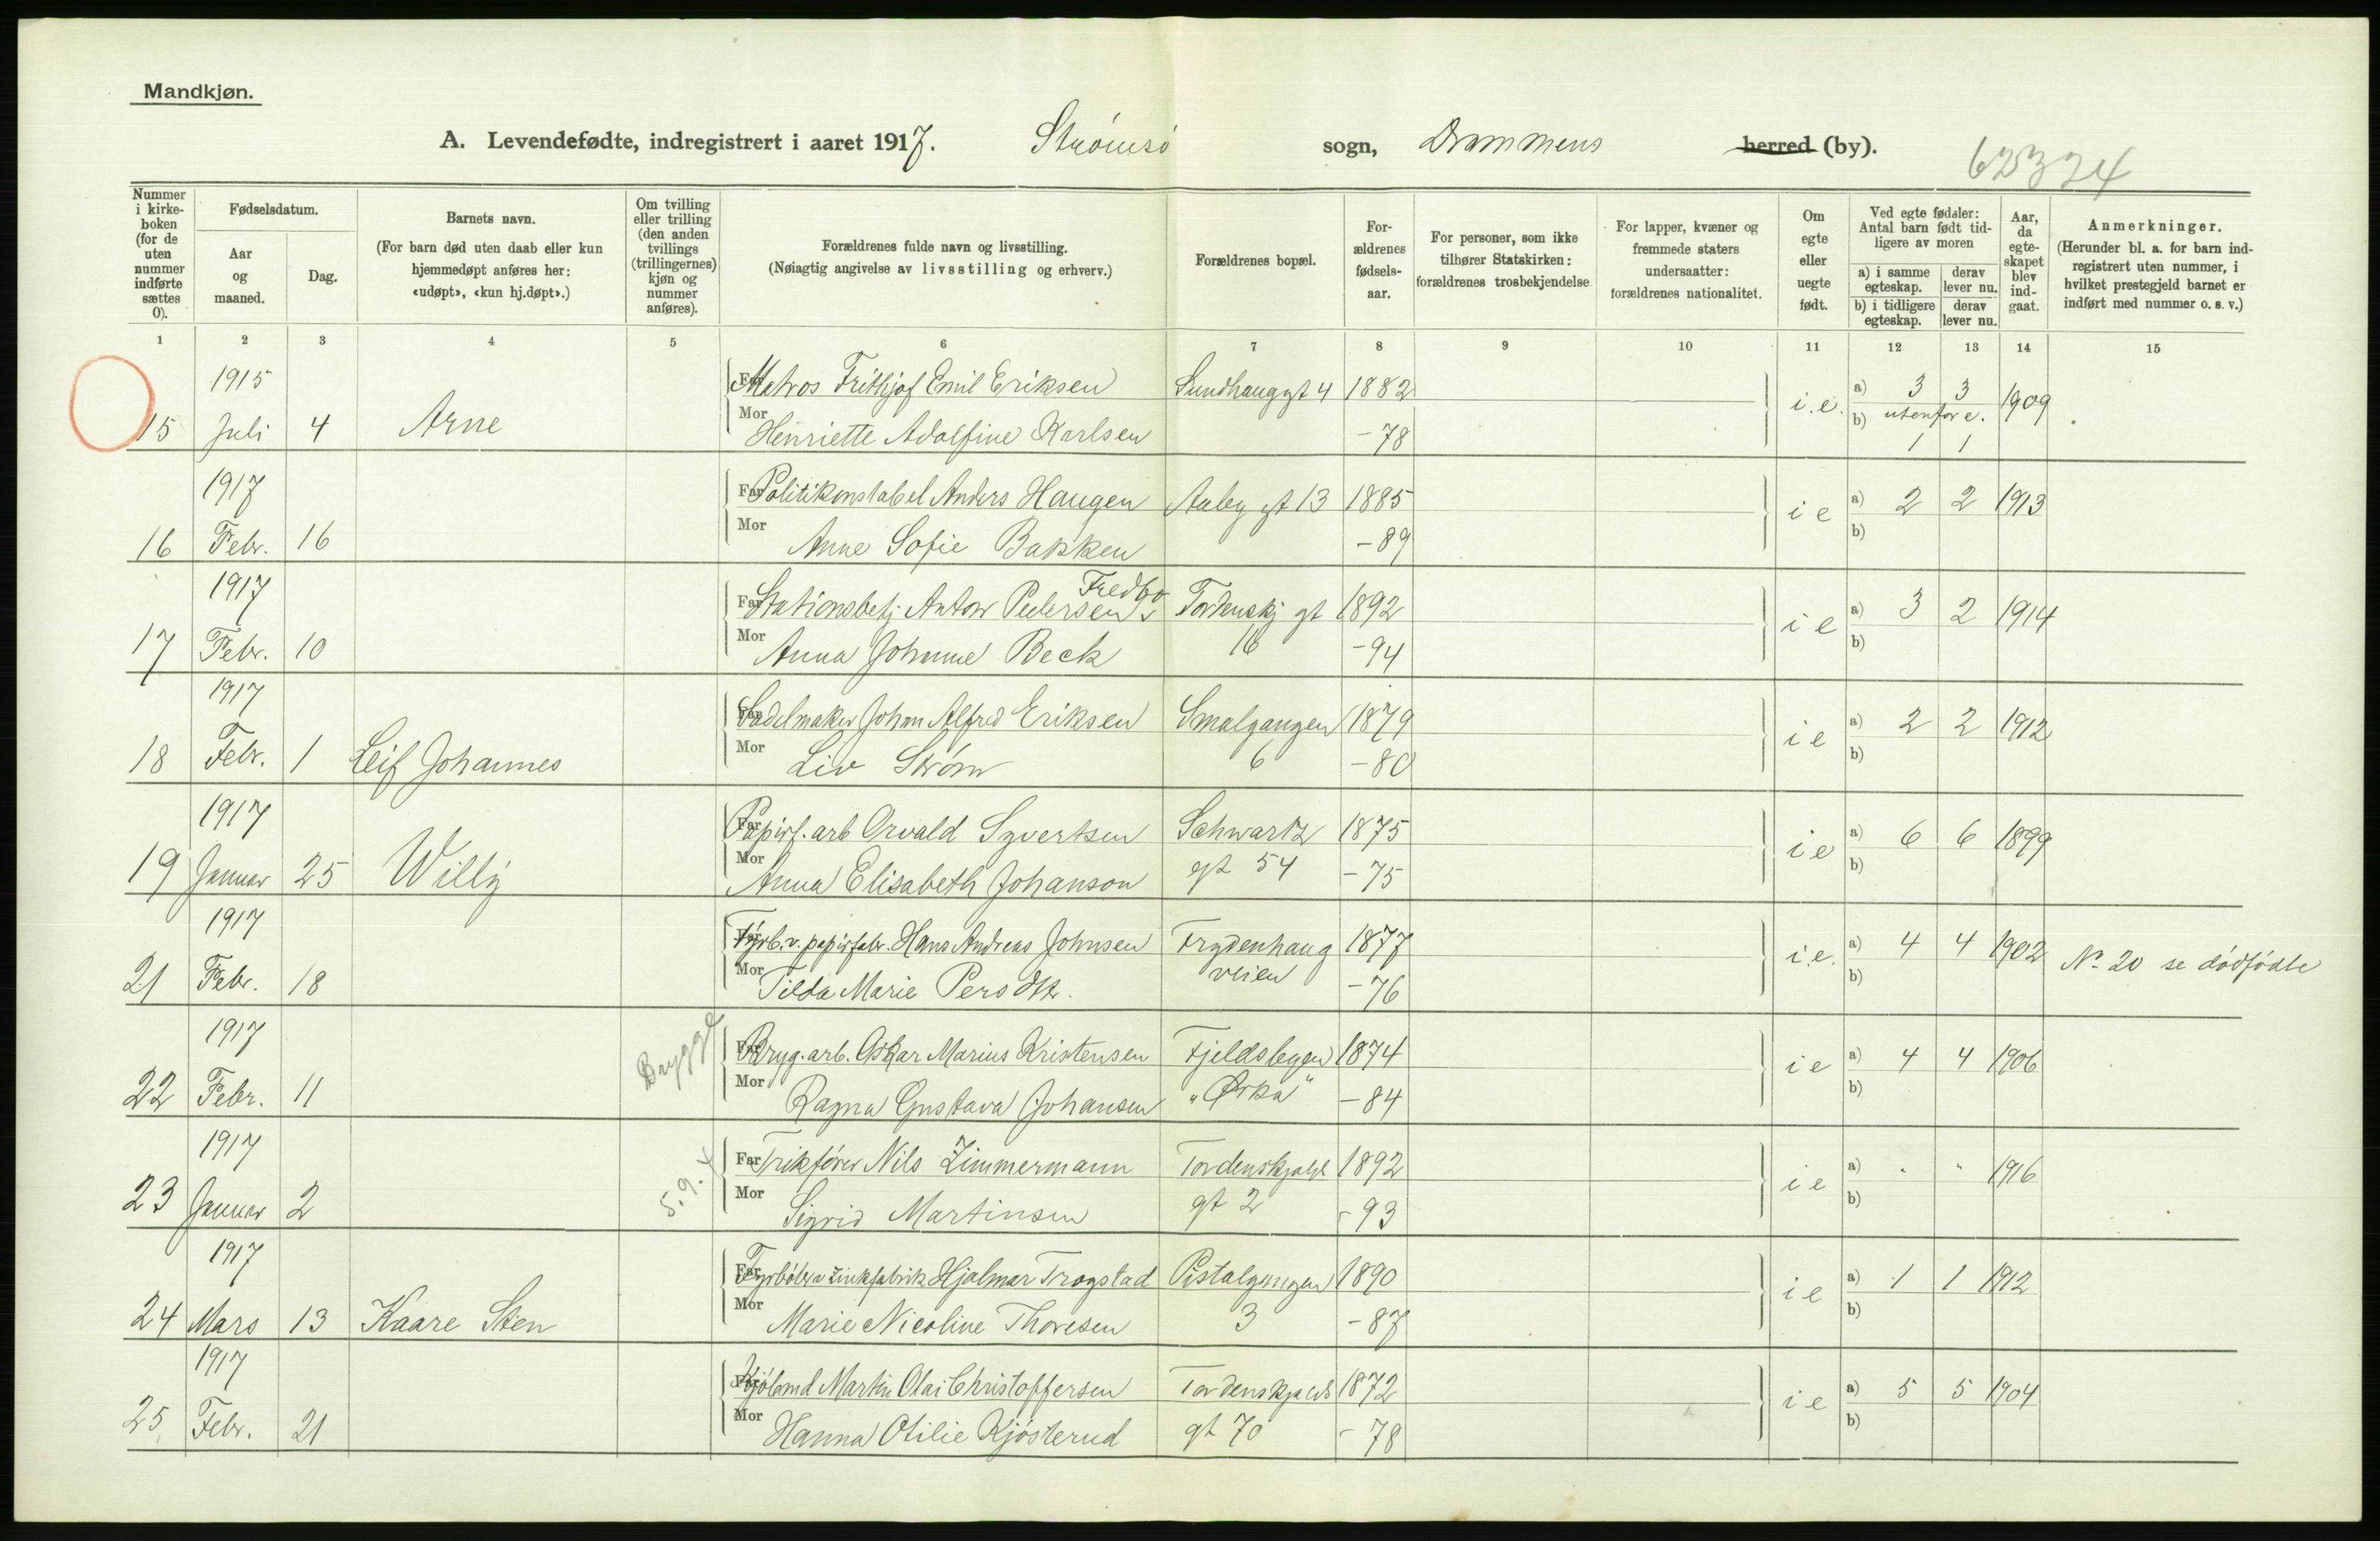 Mandkjøn.
A. Levendefødte, indregistrert i aaret 1917. Strömsö sogn, Drammens herred (by).
62324
Nummer i kirkeboken (for de uten nummer indførte sættes 0).
Fødselsdatum.
Aar og maaned.
Dag.
Barnets navn.
(For barn død uten daab eller kun hjemmedøpt anføres her: «udøpt», «kun hj.døpt».)
Om tvilling eller trilling (den anden tvillings (trillingernes) kjøn og nummer anføres).
Forældrenes fulde navn og livsstilling.
(Nøiagtig angivelse av livsstilling og erhverv.)
Forældrenes bopæl.
Forældrenes fødselsaar.
For personer, som ikke tilhører Statskirken: forældrenes trosbekjendelse.
For lapper, kvæner og fremmede staters undersaatter: forældrenes nationalitet.
Om egte eller uegte født.
Ved egte fødsler: Antal barn født tidligere av moren
a) i samme egteskap.
derav lever nu.
b) i tidligere egteskap.
derav lever nu.
Aar, da egteskapet blev indgaat.
Anmerkninger.
(Herunder bl. a. for barn indregistrert uten nummer, i hvilket prestegjeld barnet er indført med nummer o. s. v.)
1 2 3 4 5 6 7 8 9 10 11 12 13 14 15
1915 Far Matros Frithjof Emil Eriksen Sundhauggt 4 1882 a) 3 3
15 Juli 4 Arne Mor Henriette Adolfine Karlsen -78 i.e. b) utenfor e. 1 1 1909
1917 Far Politikonstabel Anders Haugen Aaby gt 13 1885 a) 2 2 1913
16 Febr. 16 Mor Anne Sofie Bakken -89 i e b)
1917 Far Stationsbetj Anton Pedersen Fredbo Tordenskj gt 1892 a) 3 2 1914
17 Febr. 10 Mor Anna Johnne Beck 16 -94 i e b)
1917 Far Sadelmaker Johan Alfred Eriksen Smalgangen 1879 a) 2 2 1912
18 Febr. 1 Leif Johannes Mor Liv Strøm 6 -80 i e b)
1917 Far Papirf. arb Orvald Syvertsen Schwartz 1875 a) 6 6 1899
19 Januar 25 Willy Mor Anna Elisabeth Johanson gt 54 -75 i e b)
1917 Far Fyrb. v. papirfabr. Hans Andreas Johnsen Frydenhaug 1877 a) 4 4 1902
21 Febr. 18 Mor Tilda Marie Persdtr. veien -76 i.e. b) No 20 se dödfödte
Brygge
1917 Far Bryg. arb. Oskar Marius Kristensen Fjeldsbyen 1874 a) 4 4 1906
22 Febr. 11 Mor Ragna Gustava Johansen "Ørka" -84 i e b)
1917 Far Nils Zimmermann Tordenskjolds 1892 a) " " 1916
23 Januar 2 5.9. Mor Sigrid Martinsen gt 2 -93 i e b)
1917 Far Fyrböter v zinkfabrik Hjalmar Trogstad Pistolgangen 1890 a) 1 1 1912
24 Mars 13 Kaare Sten Mor Marie Nicoline Thoresen 3 -87 i e b)
1917 Far Kjöbmd Martin Olai Christoffersen Tordenskjolds 1872 a) 5 5 1904
25 Febr. 21 Mor Hanna Otilie Kjösterud gt 70 -78 i e b)